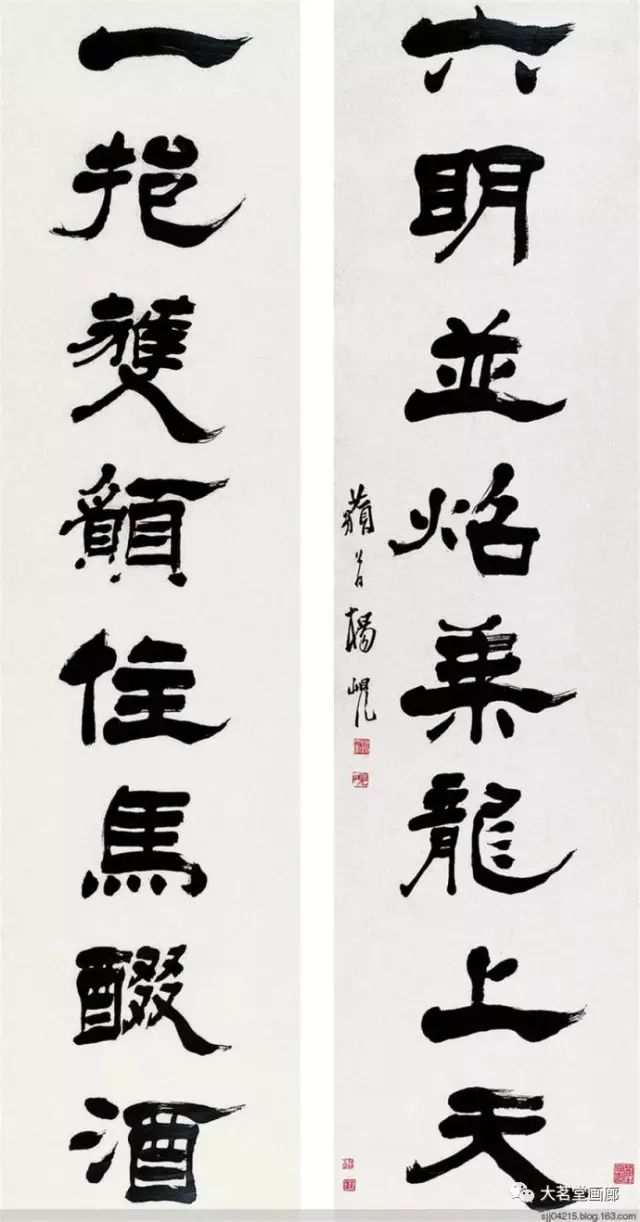 六明並焰乘龍上天
楊峴
一挹雙顏住馬醊酒
大茗堂画廊
sjj04215.blog.163.com